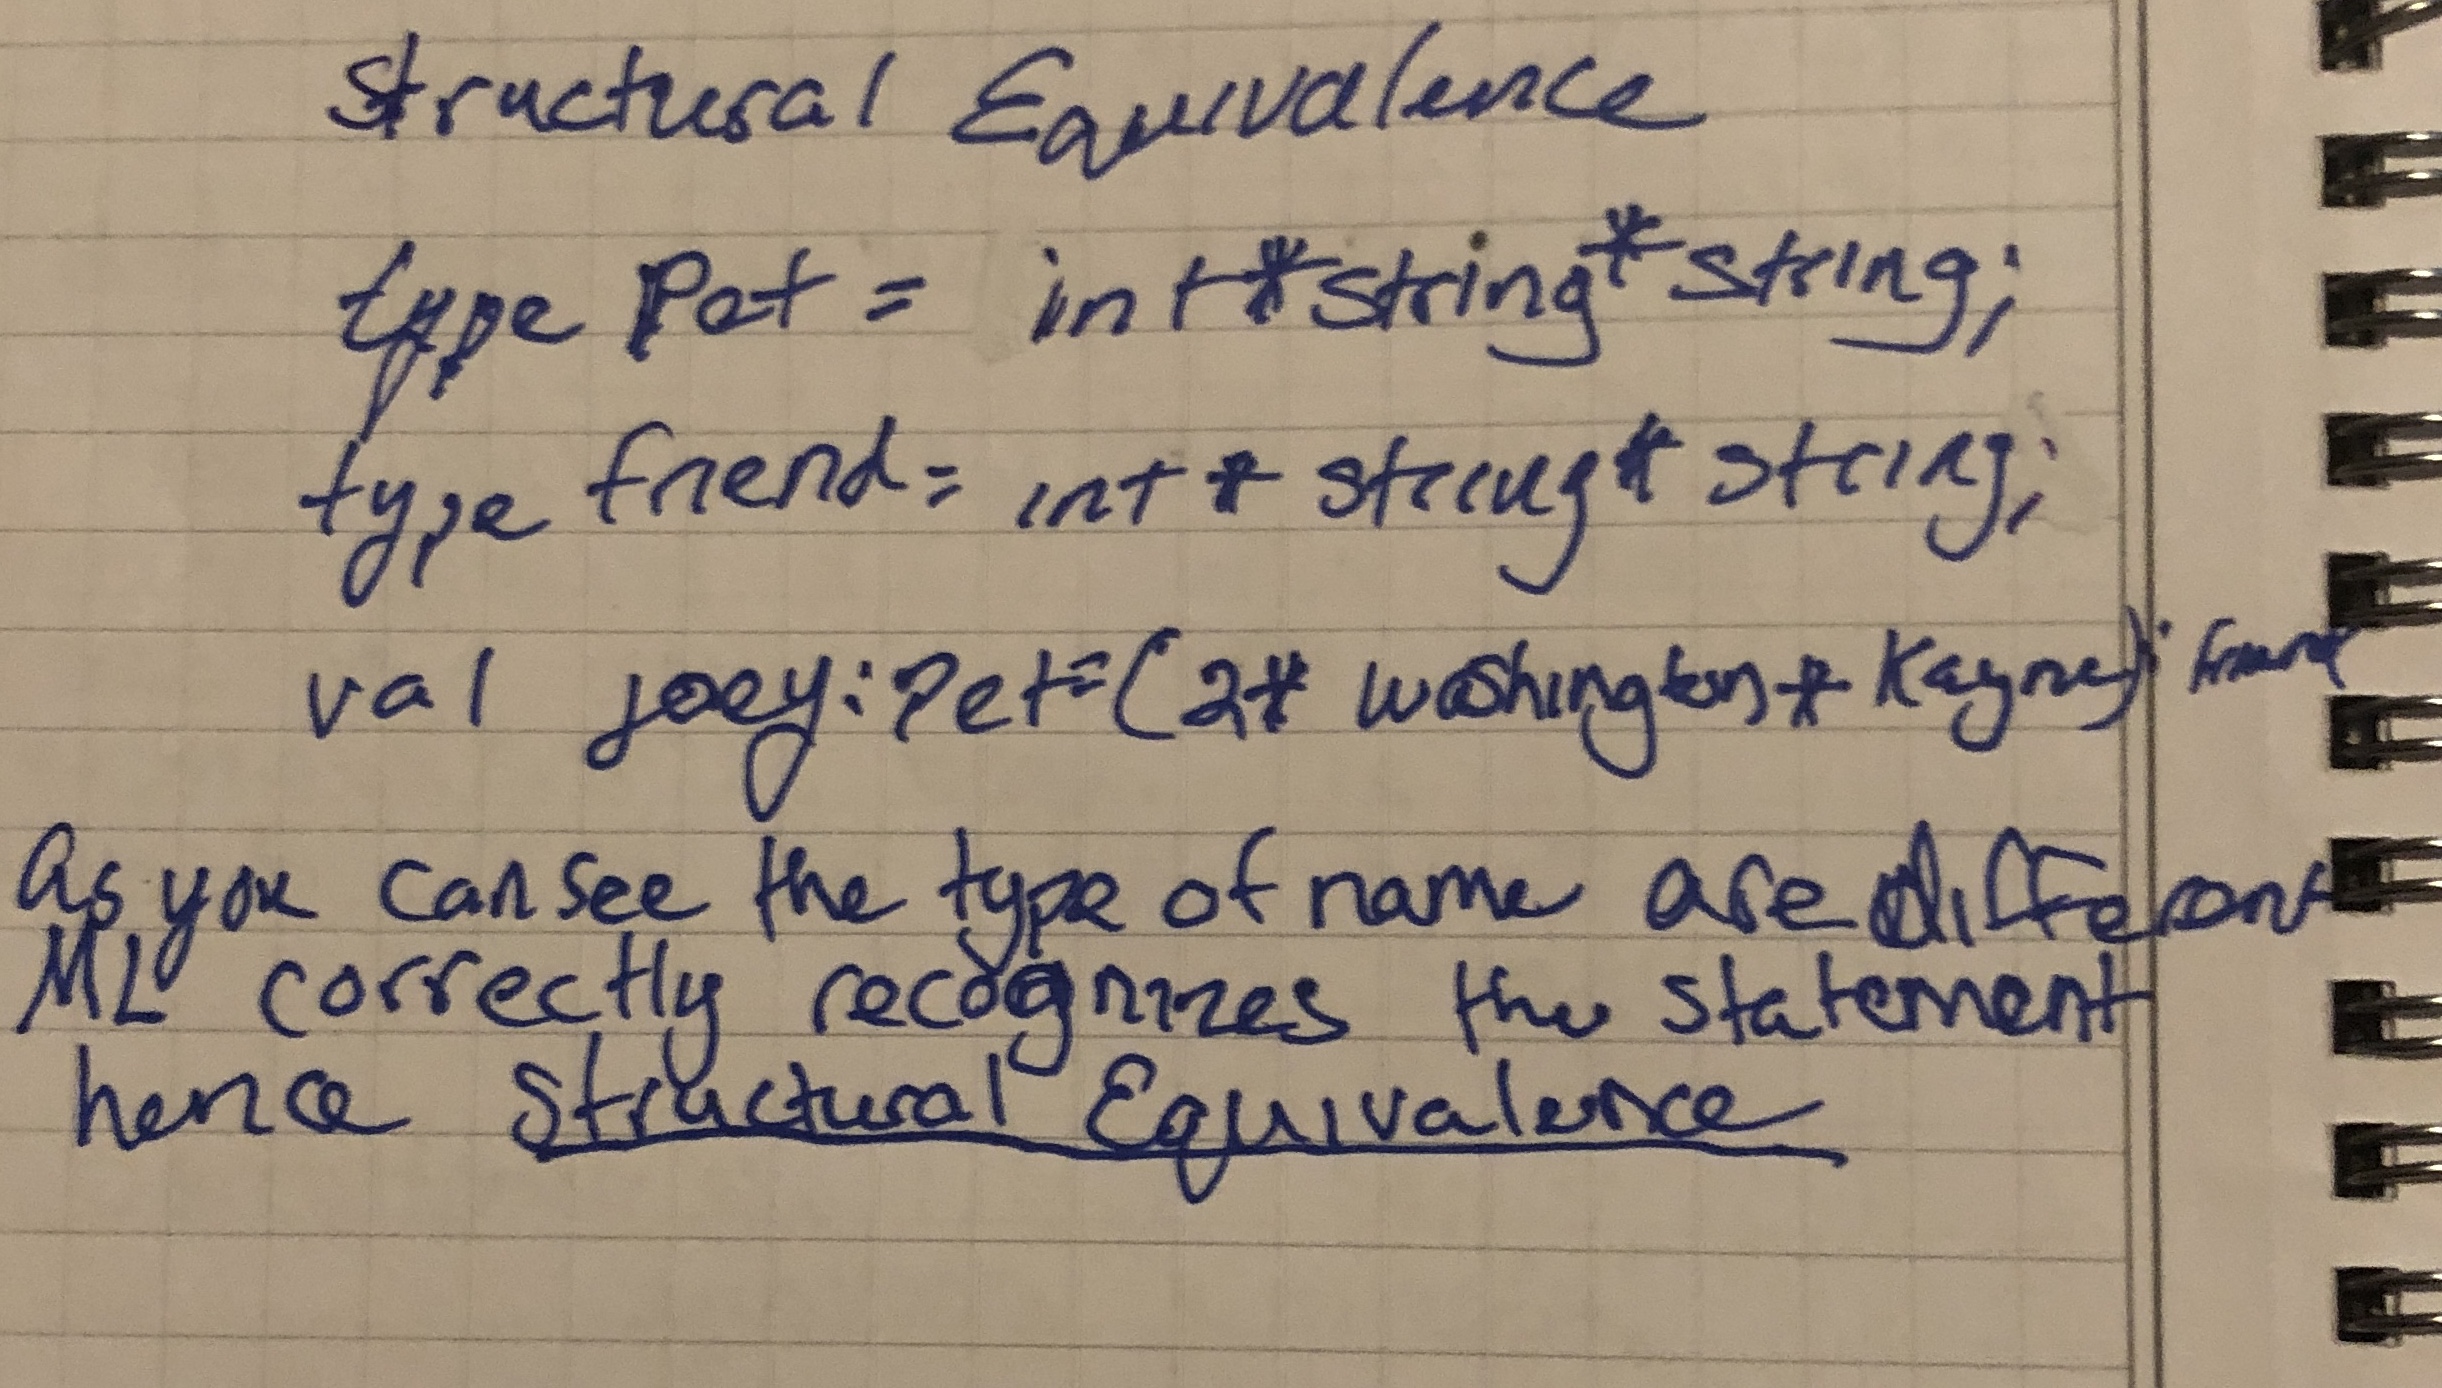 Structural Equivalence
type Pet = int * string * string;
type friend = int * string * string;
val joey: Pet = (2 * washington * Kayne): friend
As you can see the type of name are different
ML correctly recognizes the statement
hence Structural Equivalence